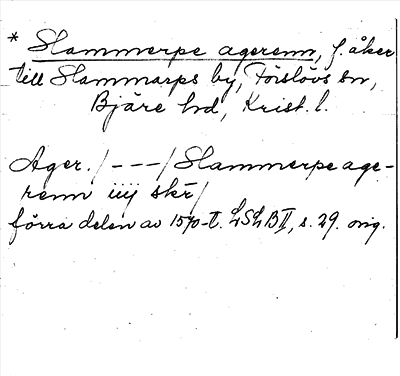 * Slammerpe agerenn, f. åker
till Slammarps by, Förslövs sn,
Bjäre hd, Krist. l.
Ager. / - - - / Slammerpe age-
renn iiij skr /
förra delen av 1570-t. LSLB II, s. 29. orig.